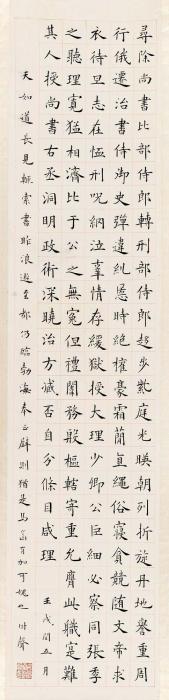 尋除尚書比部侍郎轉刑部侍郎趍步紫庭光暎朝列折旋丹地譽重周
行俄遷治書侍御史彈違糺慝時絕權豪霜簡直繩俗寢貪競随文帝求
衣待旦志在恤刑呪納泣辜情存緩獄授大理少卿公巨細必察同張季
之聽理寬猛相濟比于公之無冤但禮闈務殷樞轄寄重允膺此職寔難
其人授尚書右丞洞明政術深曉治方臧否自分條目咸理 壬戌閏五月
天如道長見拏索書昨浪遊至都仍臨勃海奉正